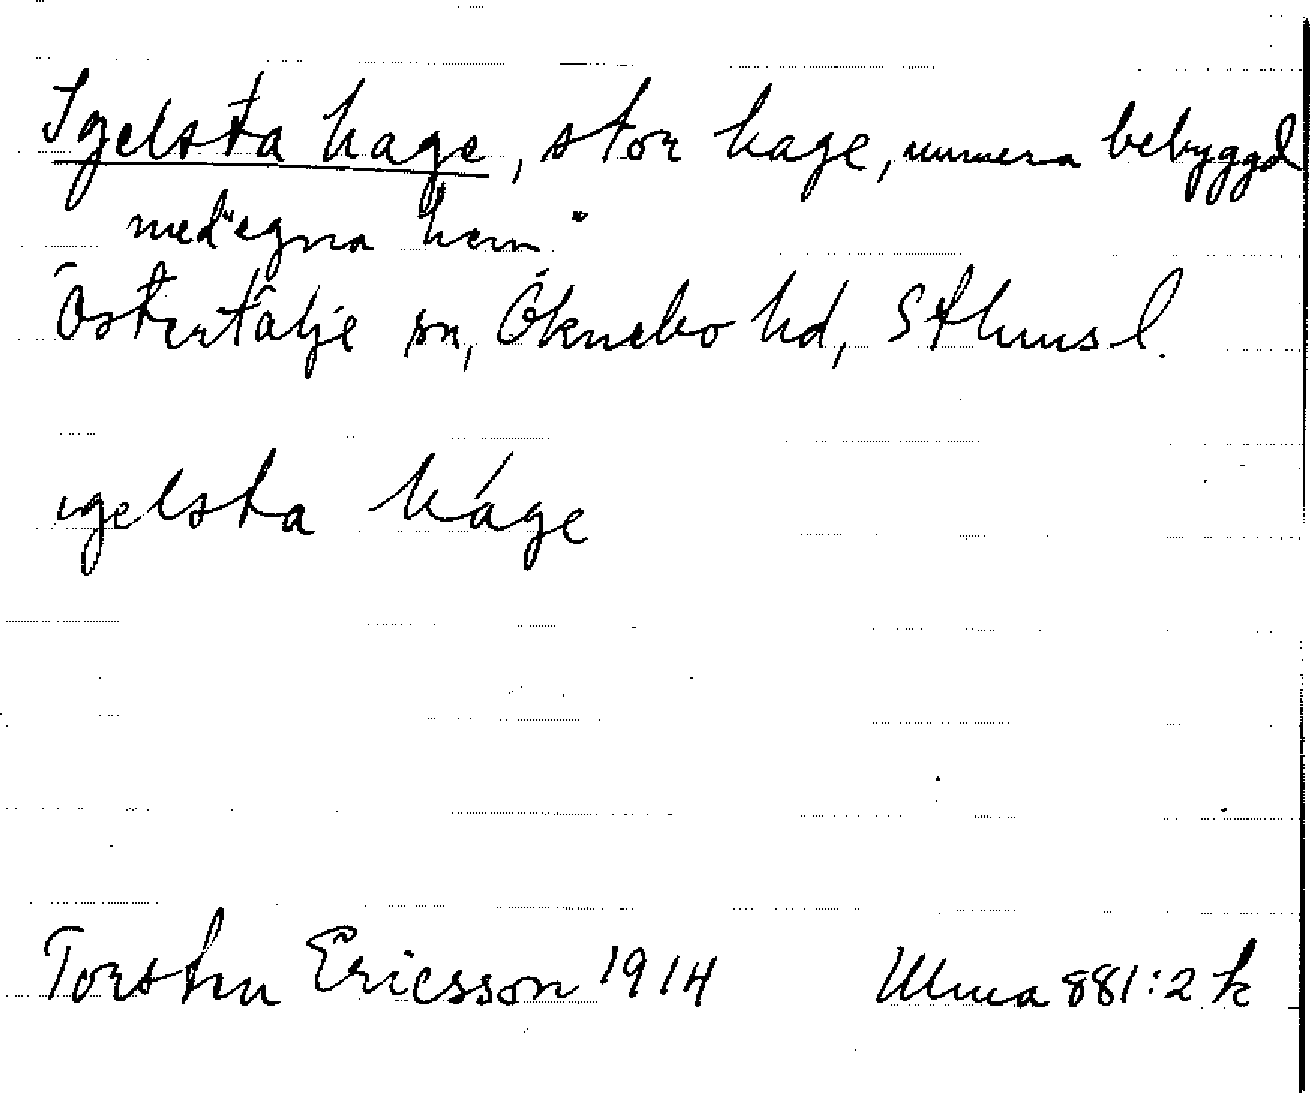 Igelsta hage, stor hage, numera bebyggd
med "egna hem"
Östertälje sn, Öknebo hd, Sthlms l.
igelsta háge
Torsten Ericsson 1914 Ulma 881:2 k